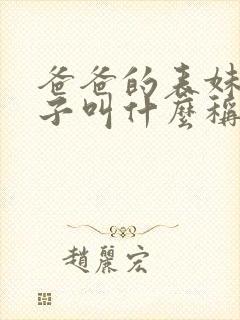 爸爸的表妹
子叫什麼稱
趙麗宏